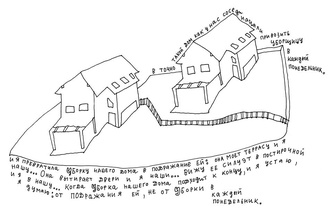 в точно такой дом как у нас соседи начали
привозить
уборщицу
в
каждый
понедельник.
и я превратила уборку нашего дома в подражание ей: она моет террасу и я
нашу... Она вытирает двери и я наши... вижу её силуэт в постирочной
и я в нашу... Когда уборка нашего дома подходит к концу, и я устаю,
я думаю: от подражания ей, не от уборки в
каждый
понедельник.